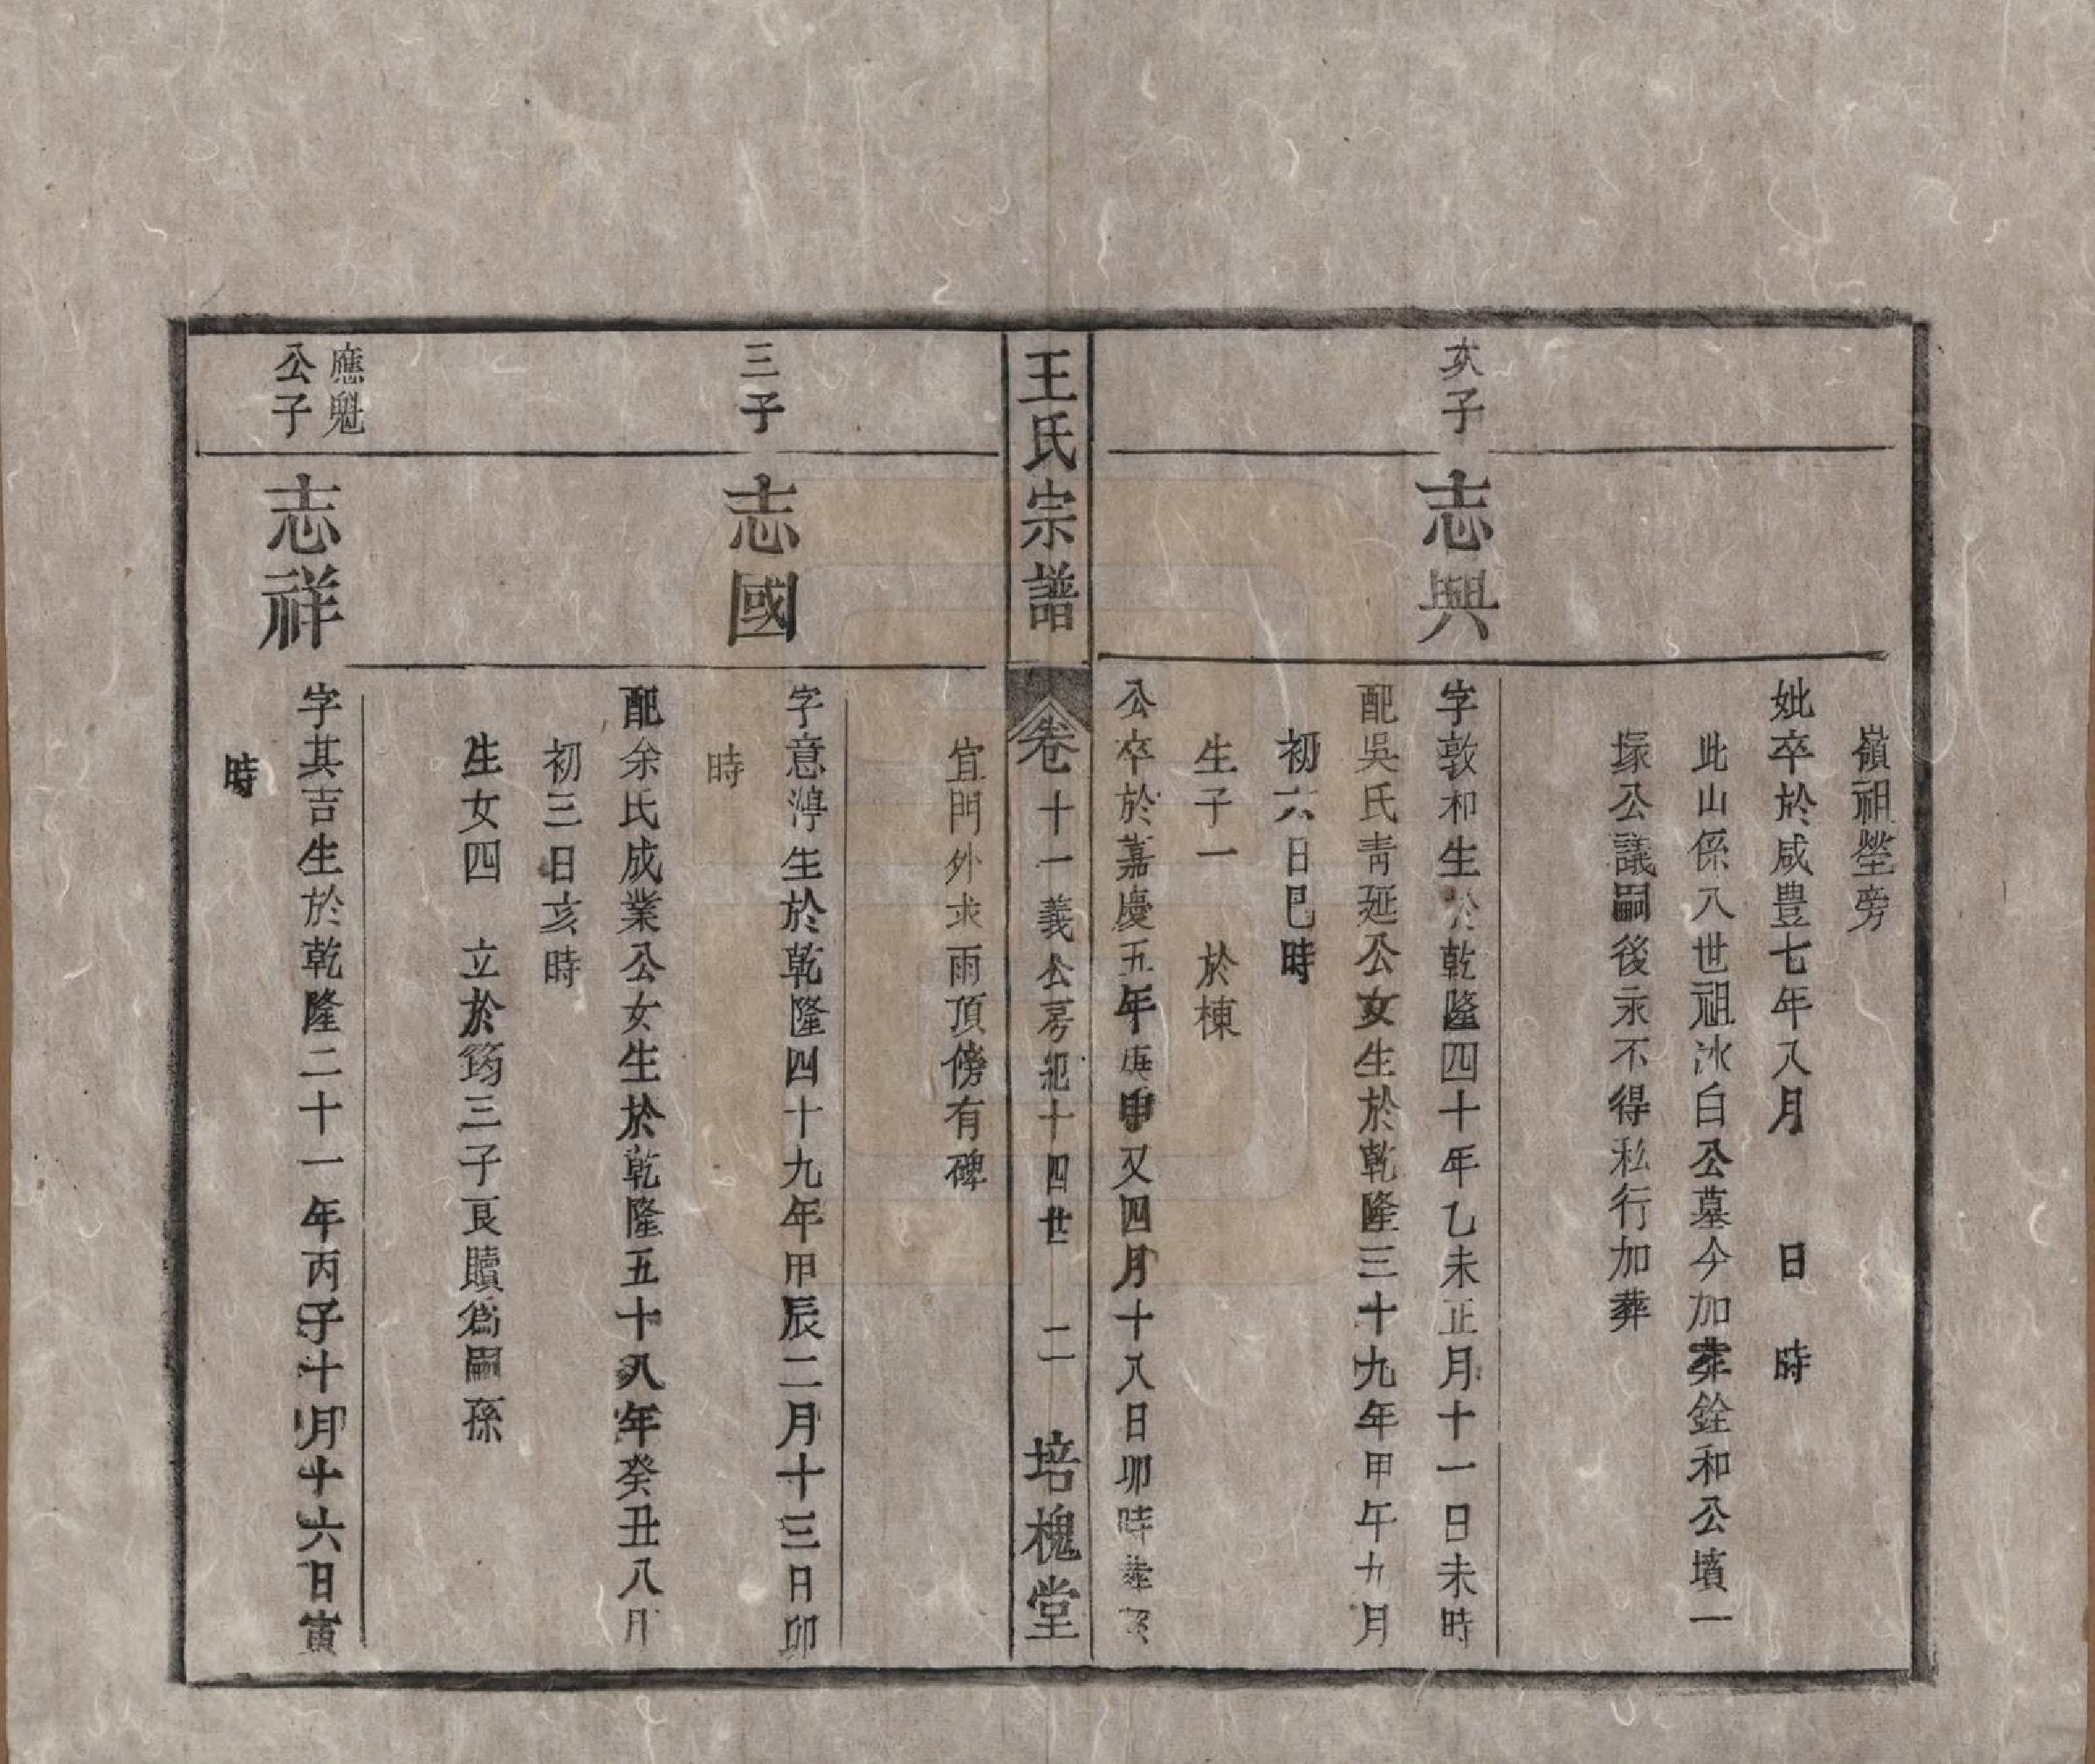 嶺祖塋旁
妣卒於咸豊七年八月　日　時
此山係八世祖冰白公墓今加葬銓和公墳一
塚公議嗣後永不得私行加葬
次子
志興
字敦和生於乾隆四十年乙未正月十一日未時
配吳氏青延公女生於乾隆三十九年甲午九月
初六日巳時
生子一　於棟
公卒於嘉慶五年庚申又四月十八日卯時葬
王氏宗譜
卷十一義公房杞十四世　二
培槐堂
宜門外求雨頂傍有碑
三子
志國
字意淳生於乾隆四十九年甲辰二月十三日卯
時
配余氏成業公女生於乾隆五十八年癸丑八月
初三日亥時
生女四　立於筠三子良贖為嗣孫
應魁
公子
志祥
字其吉生於乾隆二十一年丙子十月十六日寅
時